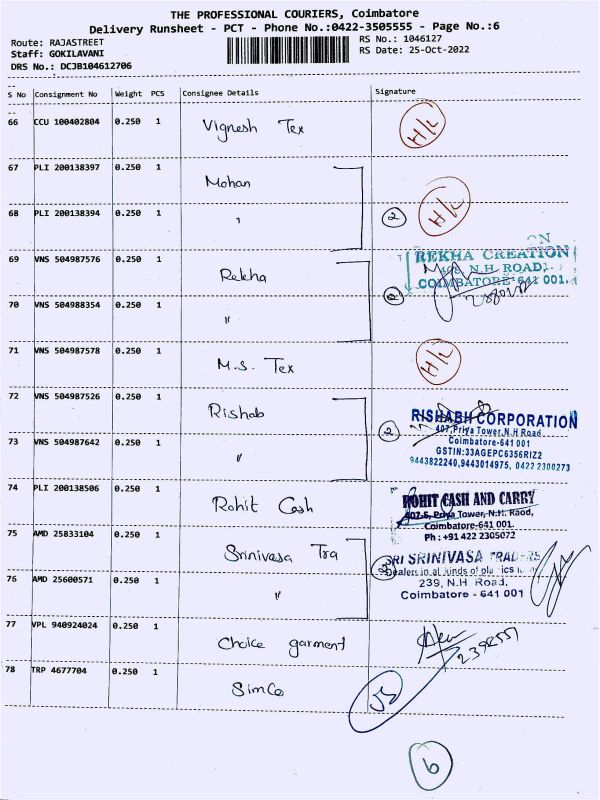 THE PROFESSIONAL COURIERS, Coimbatore
Delivery Runsheet - PCT - Phone No.:0422-3505555 - Page No.:6
Route: RAJASTREET
RS No.: 1046127
Staff: GOKILAVANI
RS Date: 25-Oct-2022
DRS No.: DCJB104612706
S No Consignment No Weight PCS Consignee Details Signature
66 CCU 100402804 0.250 1 Vignesh Tex H/L
67 PLI 200138397 0.250 1 Mohan
68 PLI 200138394 0.250 1 " 2 H/L
69 VNS 504987576 0.250 1 Rekha
REKHA CREATION
408, N.H. ROAD,
COIMBATORE-641 001.
70 VNS 504988354 0.250 1 " 2
71 VNS 504987578 0.250 1 M.S. Tex H/L
72 VNS 504987526 0.250 1 Rishab
RISHABH CORPORATION
407, Priya Tower, N.H Road
Coimbatore-641 001
GSTIN:33AGEPC6356RIZ2
9443822240,9443014975, 0422 2300273
73 VNS 504987642 0.250 1 " 2
74 PLI 200138506 0.250 1 Rohit Cash
ROHIT CASH AND CARRY
407-E, Priya Tower, N.H. Raod,
Coimbatore-641 001.
Ph : +91 422 2305072
75 AMD 25833104 0.250 1 Srinivasa Tra
SRI SRINIVASA TRADERS
Dealers in all kinds of
239, N.H Road,
Coimbatore - 641 001
76 AMD 25600571 0.250 1 "
77 VPL 940924024 0.250 1 Choice garment
2392551
78 TRP 4677704 0.250 1 SimCo
6